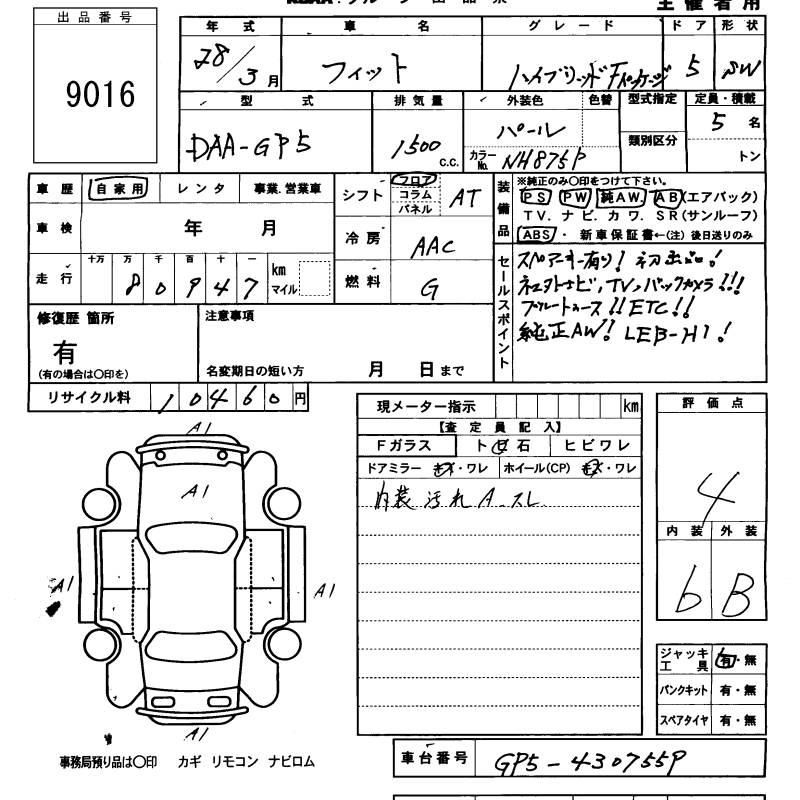 出品番号
9016
主催者用
年式 車名 グレード ドア 形状
28/3月 フィット ハイブリッドFパッケージ 5 SW
型式 排気量 外装色 色替 型式指定 定員・積載
DAA-GP5 1500 c.c. パール 5名
カラーNo. NH875P 類別区分 トン
車歴 自家用 レンタ 事業.営業車
車検 年 月
走行 十万 万 千 百 十 一 km マイル
8 0 9 4 7
シフト フロア コラム パネル AT
冷房 AAC
燃料 G
装備品
※純正のみ〇印をつけて下さい。
PS PW 純AW. AB(エアバック)
TV. ナビ. カワ. SR(サンルーフ)
ABS・新車保証書←(注)後日送りのみ
セールスポイント
スペアキー有り! 初出品!
TV、バックカメラ!!!
ETC!!
純正AW!
修復歴 箇所
有
(有の場合は〇印を)
注意事項
名変期日の短い方 月 日まで
リサイクル料 10460円
現メーター指示 km
【査定員記入】
Fガラス ト石 ヒビワレ
ドアミラー キズ・ワレ ホイール(CP) キズ・ワレ
内装汚れ A. スレ
評価点
4
内装 外装
b B
A1
A1
A1
A1
A1
ジャッキ工具 有・無
パンクキット 有・無
スペアタイヤ 有・無
事務局預り品は〇印 カギ リモコン ナビロム
車台番号 GP5-4307559